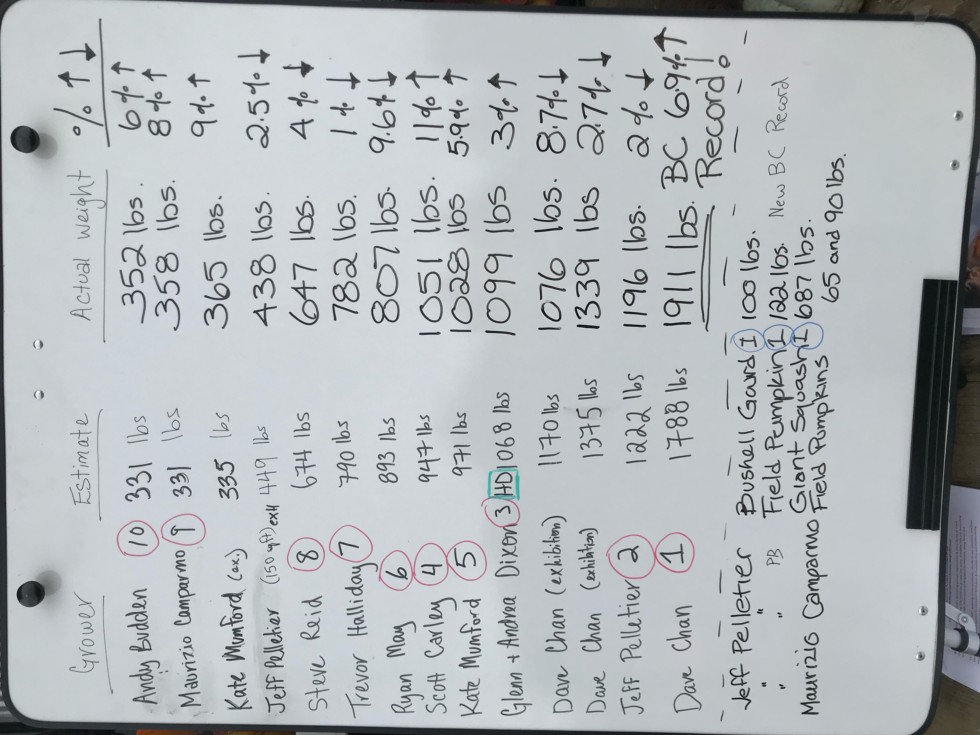 Grower Estimate Actual Weight % ↑ ↓
Andy Budden 10 331 lbs 352 lbs. 6% ↑
Maurizio Camparmo 9 331 lbs 358 lbs. 8% ↑
Kate Mumford (ex.) 335 lbs 365 lbs. 9% ↑
Jeff Pelletier (150 sq ft) exh 449 lbs 438 lbs. 2.5% ↓
Steve Reid 8 674 lbs 647 lbs. 4% ↓
Trevor Halliday 7 790 lbs 782 lbs. 1% ↓
Ryan May 6 893 lbs 807 lbs. 9.6% ↓
Scott Carley 4 947 lbs 1051 lbs. 11% ↑
Kate Mumford 5 971 lbs 1028 lbs 5.9% ↑
Glenn + Andrea Dixon 3 HD 1068 lbs 1099 lbs 3% ↑
Dave Chan (exhibition) 1170 lbs 1076 lbs. 8.7% ↓
Dave Chan (exhibition) 1375 lbs 1339 lbs 2.7% ↓
Jeff Pelletier 2 1222 lbs 1196 lbs. 2% ↓
Dave Chan 1 1788 lbs 1911 lbs. BC 6.9% ↑
Record!
Jeff Pelletier Bushell Gourd 1 100 lbs.
" " PB Field Pumpkin 1 122 lbs. New BC Record
" " Giant Squash 1 687 lbs.
Maurizio Camparmo Field Pumpkins 65 and 90 lbs.